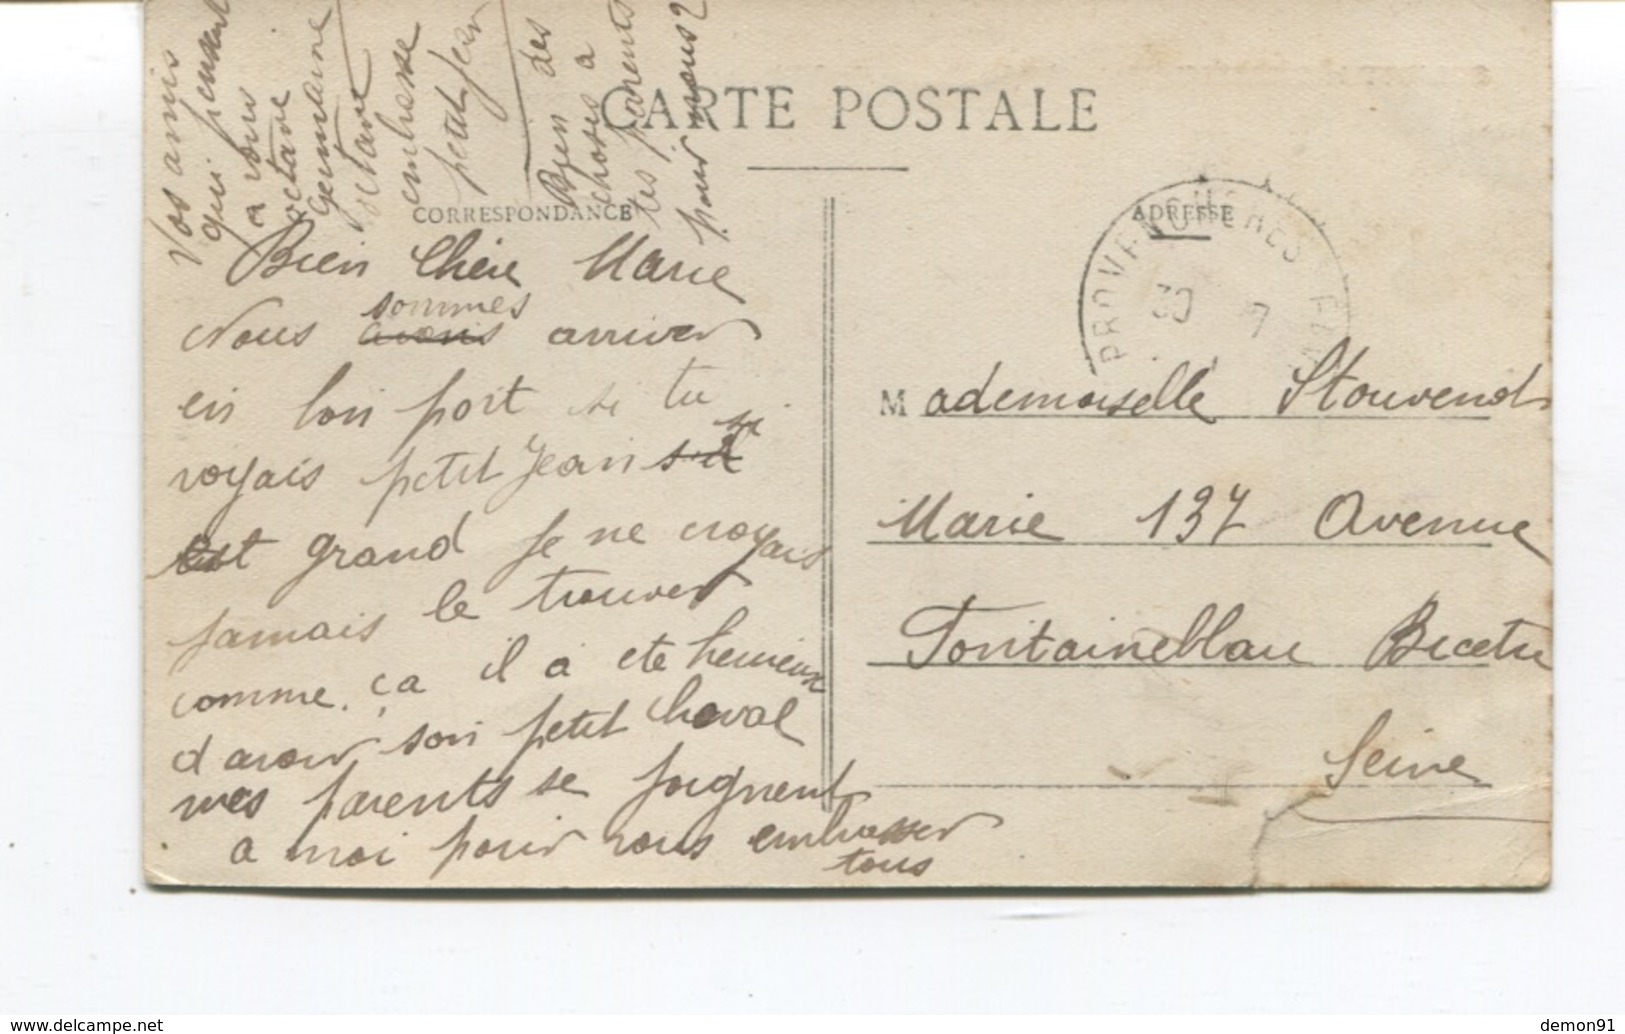 CARTE POSTALE
CORRESPONDANCE
ADRESSE
Vos amis
qui pensent
a vous
octave
Germaine
octave
embrasse
petit jean
Bien des
choses a
tes parents
pour nous 2
Bien Chère Marie
sommes
Nous avons arriver
en bon port si tu
voyais petit Jean s'il si
est grand je ne croyais
jamais le trouver
comme ça il a ete heureux
d avoir son petit cheval
mes parents se joignent
a moi pour vous embrasser
tous
PROVENCHERES
30 7
Mademoiselle Stouvenel
Marie 137 Avenue
Fontaineblau Bicetre
Seine
www.delcampe.net
demon91